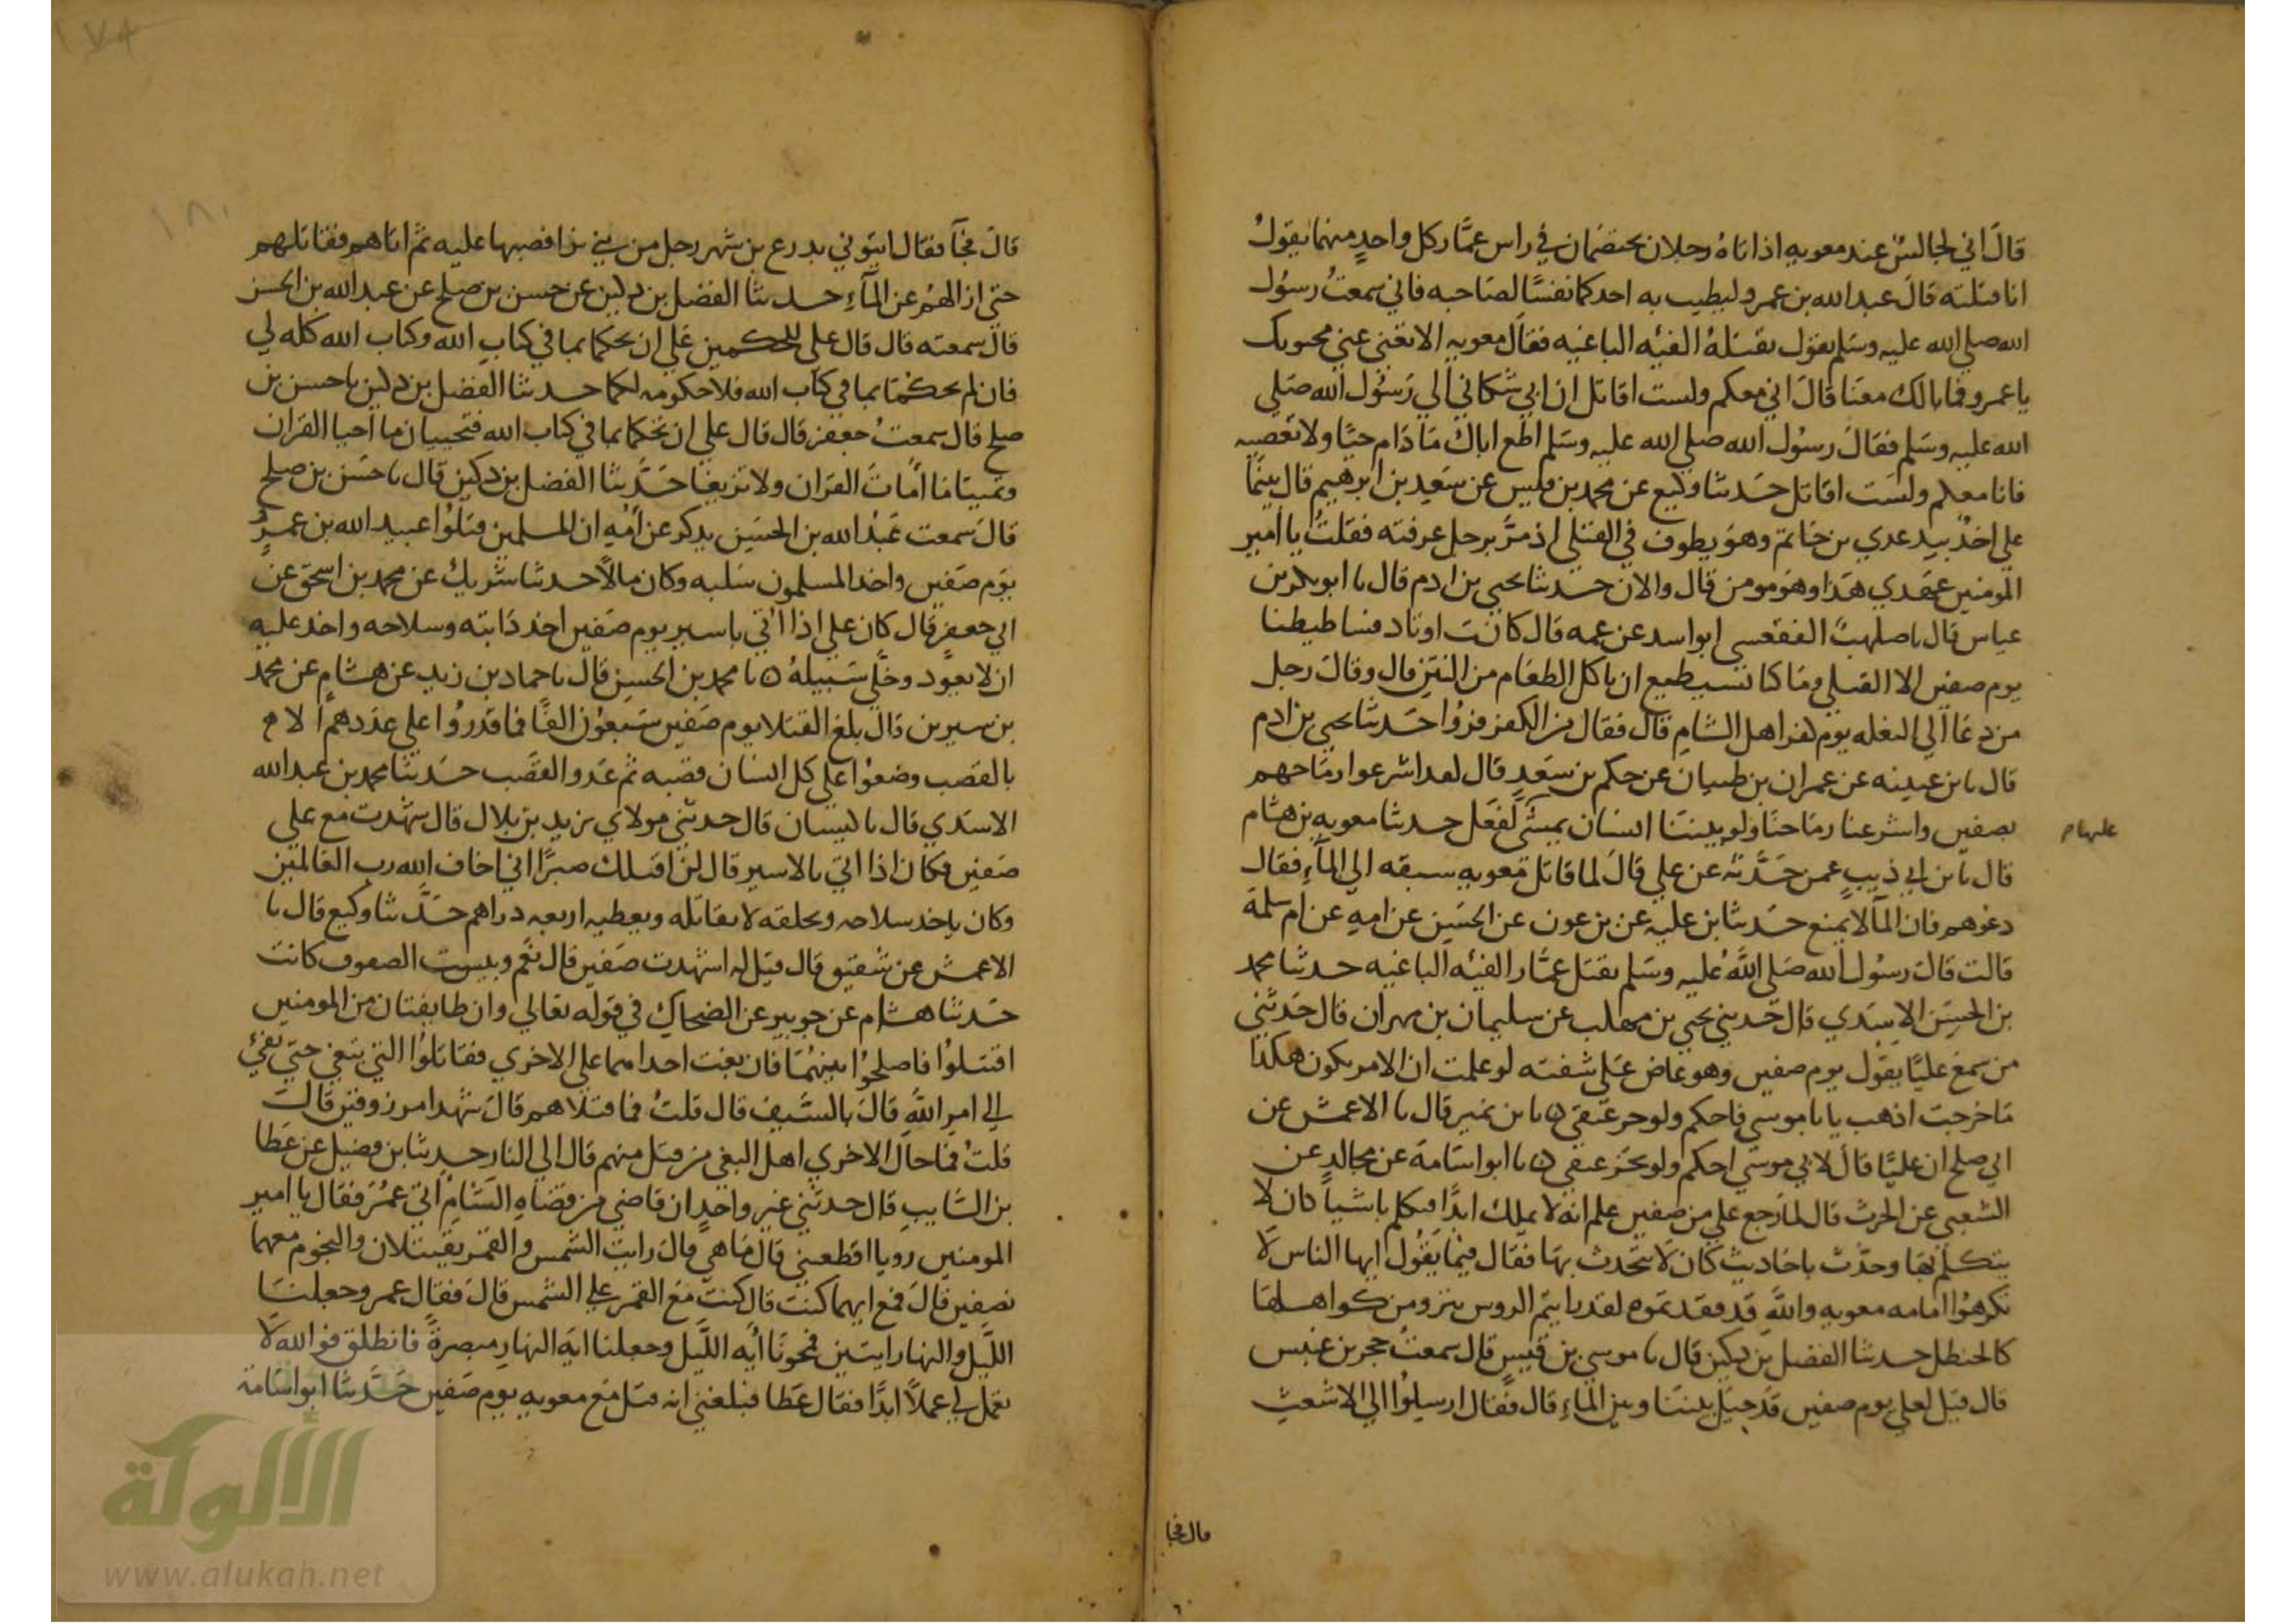 قال اني لجالس عند معويه اذ اتاه رجلان يختصمان في راس عمار كل واحد منهما يقول
انا قتلته قال عبد الله بن عمرو ليطيب به احدكما نفسا لصاحبه فاني سمعت رسول
الله صلي الله عليه وسلم يقول تقتله الفئه الباغيه فقال معويه الا تغني عني مجنونك
يا عمرو فما بالك معنا قال اني معكم ولست اقاتل ان ابي شكاني الي رسول الله صلي
الله عليه وسلم فقال رسول الله صلي الله عليه وسلم اطع اباك ما دام حيا ولا تعصيه
فانا معكم ولست اقاتل حدثنا وكيع عن محمد بن قيس عن سعيد بن ابرهيم قال بينما
علي اخذ بيد عدي بن حاتم وهو يطوف في القتلي اذ مر برجل عرفته فقلت يا امير
المومنين عهدي هذا وهو مومن قال والان حدثنا يحيي بن ادم قال نا ابو بكر بن
عياس قال نا صلهب الفقعسي ابو اسد عن عمه قال كانت اوتاد فساطيطنا
يوم صفين الا القتلي وما كنا نستطيع ان ناكل الطعام من النتن قال وقال رجل
من دعا الي البغله يوم كفر اهل الشام قال فقال من الكفر فروا حدثنا يحيي بن ادم
قال نا بن عيينه عن عمران بن ظبيان عن حكم بن سعد قال لقد اشرعوا رماحهم
بصفين واشرعنا رماحنا ولو بيننا انسان يمشي لفعل حدثنا معويه بن هشام
عليها م
قال نا بن ابي ذيب عمن حدثه عن علي قال لما قاتل معويه سبقه الي الماء فقال
دعوهم فان الما لا يمنع حدثنا بن عليه عن بن عون عن الحسين عن امه عن ام سلمة
قالت قال رسول الله صلي الله عليه وسلم تقتل عمار الفئه الباغيه حدثنا محمد
بن الحسن الاسدي قال حدثني يحيي بن مهلب عن سليمان بن مهران قال حدثني
من سمع عليا يقول يوم صفين وهو عاض علي شفته لو علمت ان الامر يكون هكذا
ما خرجت اذهب يا با موسي فاحكم ولو حر عنقي ه نا بن نمير قال نا الاعمش عن
ابي صلح ان عليا قال لابي موسي احكم ولو بحز عنقي ه نا ابو اسامة عن مجالد عن
الشعبي عن الحرث قال لما رجع علي من صفين علم انه لا يملك ابدا فتكلم باشيا كان لا
يتكلم بها وحدث باحاديث كان لا يتحدث بها فقال فيما يقول ايها الناس لا
تكرهوا امامه معويه والله قد فقدتموه لقد رايتم الروس ينزو من كواهلها
كالحنظل حدثنا الفضل بن دكين قال نا موسي بن قيس قال سمعت حجر بن عنبس
قال قيل لعلي يوم صفين قد حيل بيننا وبين الماء قال فقال ارسلوا الي الاشعث
قال فجا
قال فجآ فقال ايتوني بدرع بن شهر رجل من بني برا فصبها عليه ثم اتاهم فقاتلهم
حتي ازالهم عن الماء حدثنا الفضل بن دكين عن حسن بن صلح عن عبد الله بن الحسن
قال سمعته قال قال علي للحكمين علي ان تحكما بما في كتاب الله وكتاب الله كله لي
فان لم تحكما بما في كتاب الله فلا حكومه لكما حدثنا الفضل بن دكين نا حسن بن
صلح قال سمعت جعفر قال قال علي ان تحكما بما في كتاب الله فتحييان ما احيا القران
وتميتا ما امات القران ولا تزيغا حدثنا الفضل بن دكين قال نا حسن بن صلح
قال سمعت عبد الله بن الحسين يذكر عن امه ان المسلمين قتلوا عبيد الله بن عمر
يوم صفين واخذ المسلمون سلبه وكان مالا حدثنا شريك عن محمد بن اسحق عن
ابي جعفر قال كان علي اذا اتي باسير يوم صفين اخذ دابته وسلاحه واخذ عليه
ان لا يعود وخلي سبيله ه نا محمد بن الحسن قال نا حماد بن زيد عن هشام عن محمد
بن سيرين قال بلغ القتلا يوم صفين سبعون الفا فما قدروا علي عددهم الا
بالقصب وضعوا علي كل انسان قصبه ثم عدو القصب حدثنا محمد بن عبد الله
الاسدي قال نا كيسان قال حدثني مولاي يزيد بن بلال قال شهدت مع علي
صفين فكان اذا اتي بالاسير قال لن اقتلك صبرا اني اخاف الله رب العالمين
وكان ياخذ سلاحه ويحلفه لا يقاتله ويعطيه اربعه دراهم حدثنا وكيع قال نا
الاعمش عن شقيق قال قيل له اشهدت صفين قال نعم وبيست الصفوف كانت
حدثنا هشام عن جويبر عن الضحاك في قوله تعالي وان طايفتان من المومنين
اقتتلوا فاصلحوا بينهما فان بغت احداهما علي الاخري فقاتلوا التي تبغي حتي تفئ
الي امر الله قال بالسيف قال قلت فما قتلاهم قال شهدا مرزوقين قال
قلت فما حال الاخري اهل البغي من قتل منهم قال الي النار حدثنا بن فضيل عن عطا
بن السايب قال حدثني غير واحد ان قاضي من قضاه الشام اتي عمر فقال يا امير
المومنين رويا افظعتني قال ما هي قال رايت الشمس والقمر يقتتلان والنجوم معهما
نصفين قال فمع ايهما كنت قال كنت مع القمر علي الشمس قال فقال عمر وجعلنا
الليل والنهار ايتين فمحونا ايه الليل وجعلنا ايه النهار مبصرة فانطلق فوالله لا
تعمل لي عملا ابدا فقال عطا فبلغني انه قتل مع معويه يوم صفين حدثنا ابو اسامة
١٨٠
الألوكة
www.alukah.net